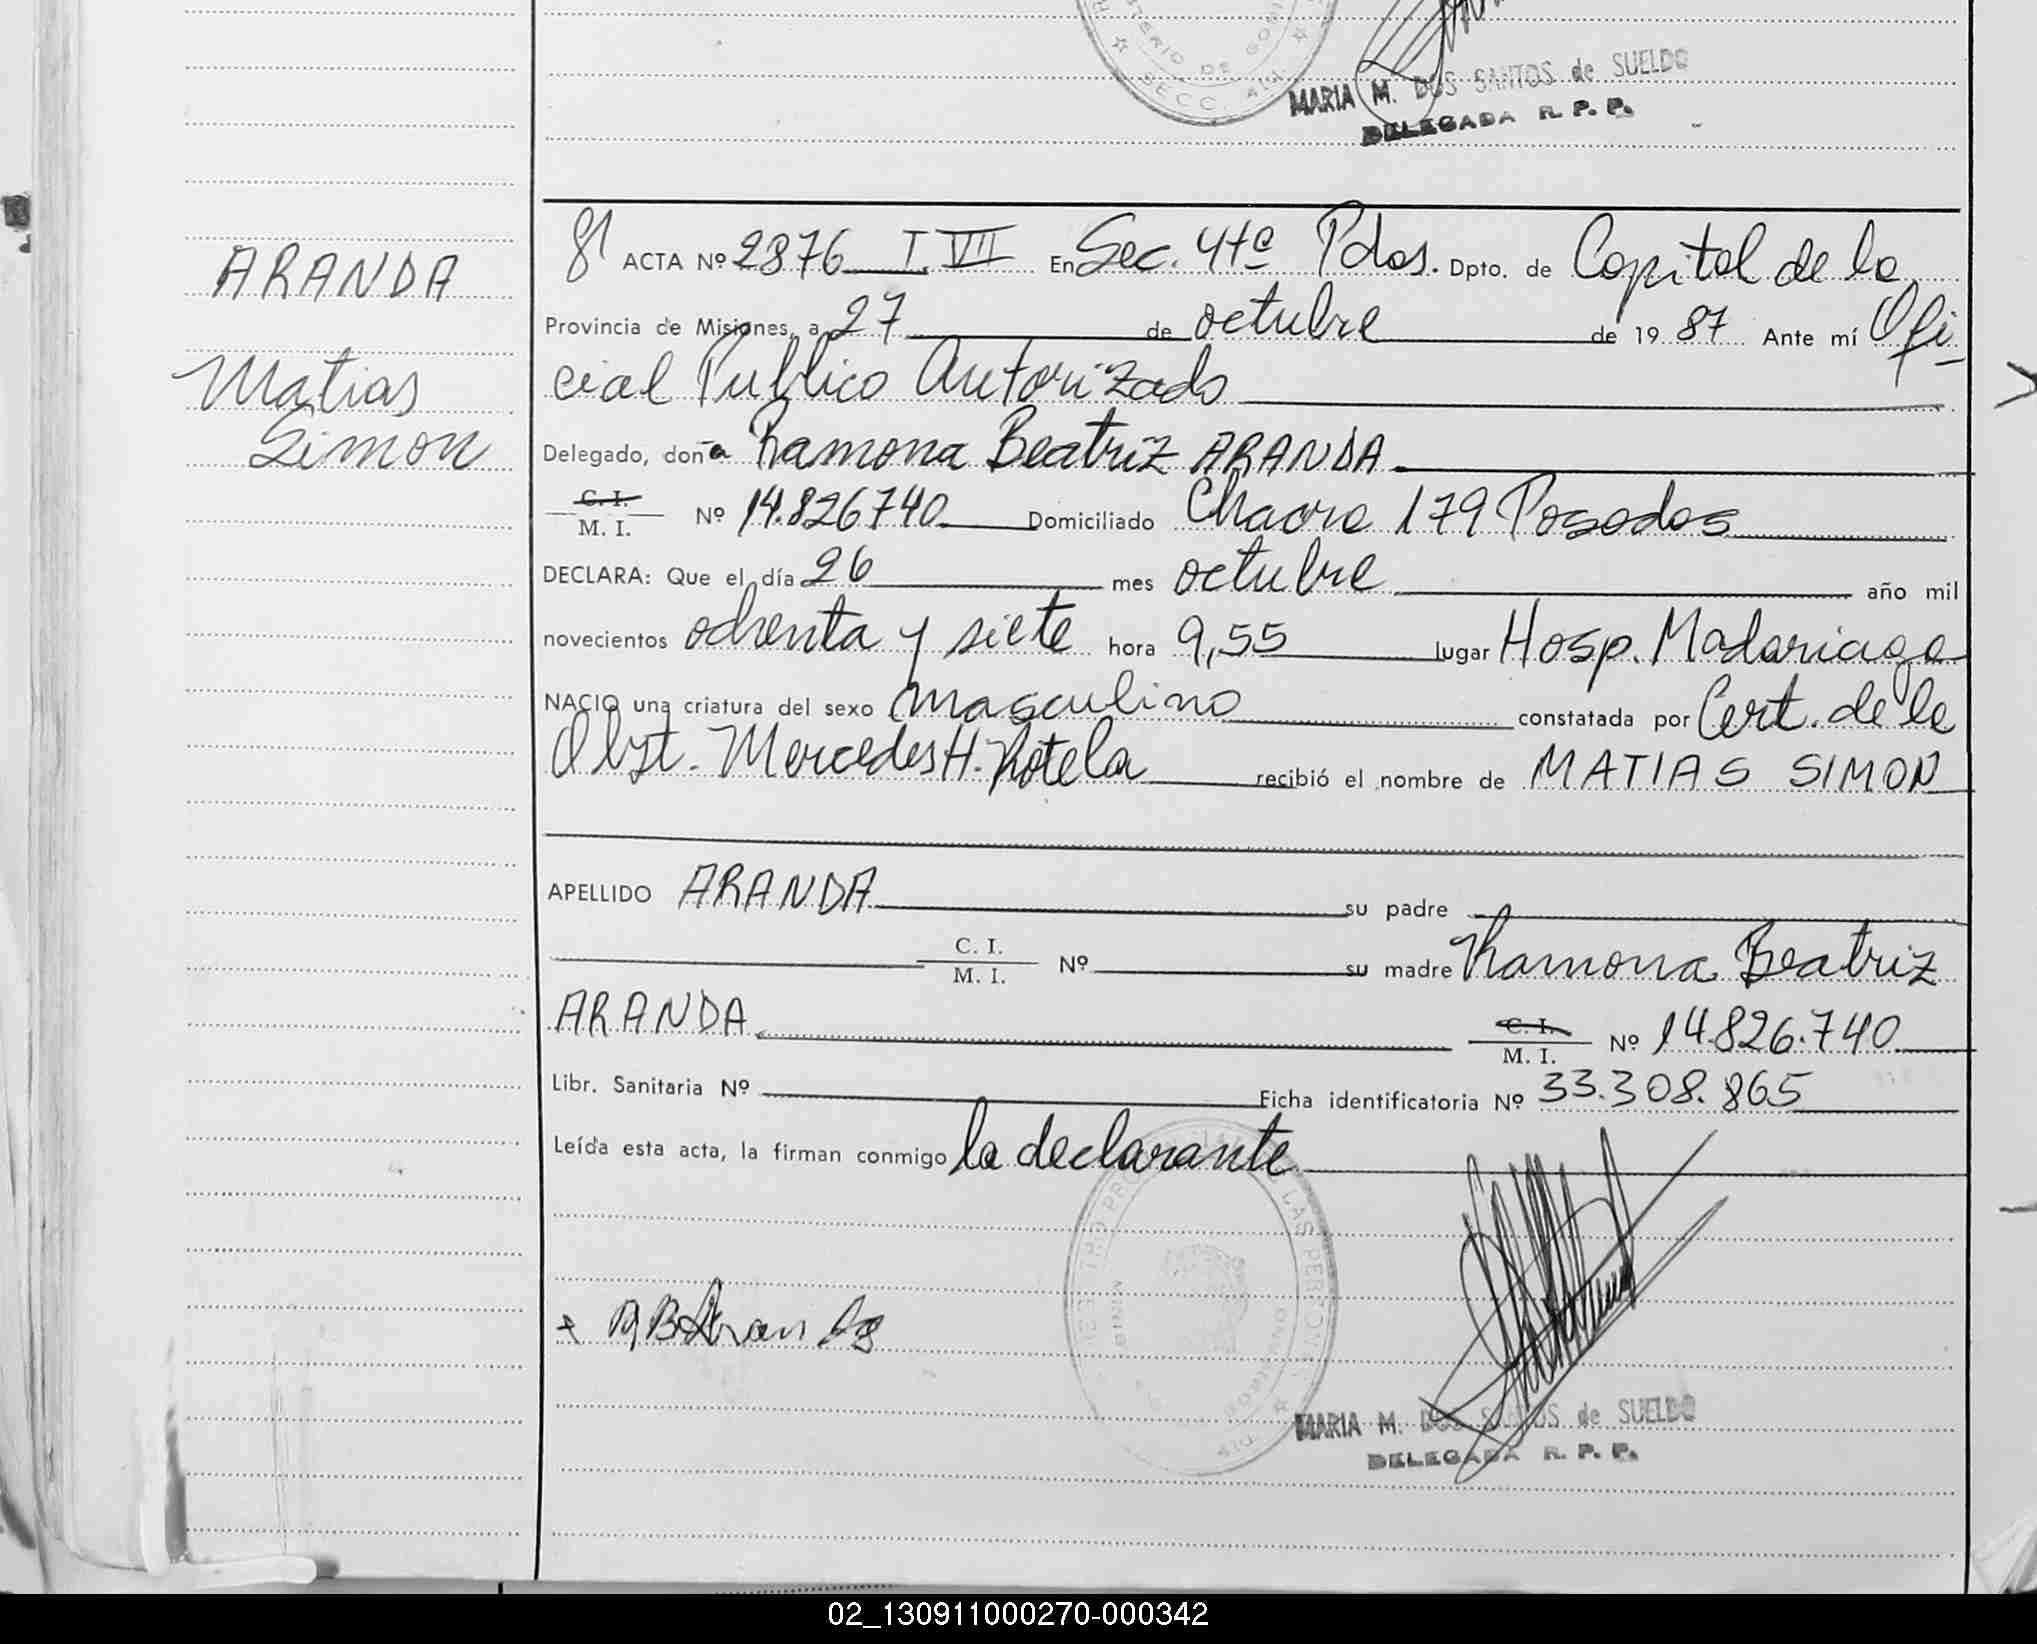 MINISTERIO DE GOBI
SECC. 4ta.
MARIA M. DOS SANTOS de SUELDO
DELEGADA R. P. P.
ARANDA
Matias
Simon
ACTA Nº 2876 T. VII En Sec. 4ta Pdas. Dpto. de Capital de la
Provincia de Misiones, a 27 de octubre de 19 87 Ante mí Ofi-
cial Publico Autorizado
Delegado, doña Ramona Beatriz ARANDA
C. I.
M. I. Nº 14.826740 Domiciliado Chacra 179 Posadas
DECLARA: Que el día 26 mes octubre año mil
novecientos ochenta y siete hora 9,55 lugar Hosp. Madariaga
NACIO una criatura del sexo masculino constatada por Cert. de la
Obst. Mercedes H. Rotela recibió el nombre de MATIAS SIMON
APELLIDO ARANDA su padre
C. I.
M. I. Nº su madre Ramona Beatriz
ARANDA C. I.
M. I. Nº 14.826.740
Libr. Sanitaria Nº Ficha identificatoria Nº 33.308.865
Leída esta acta, la firman conmigo la declarante
MARIA M. DOS SANTOS de SUELDO
DELEGADA R. P. P.
02_130911000270-000342